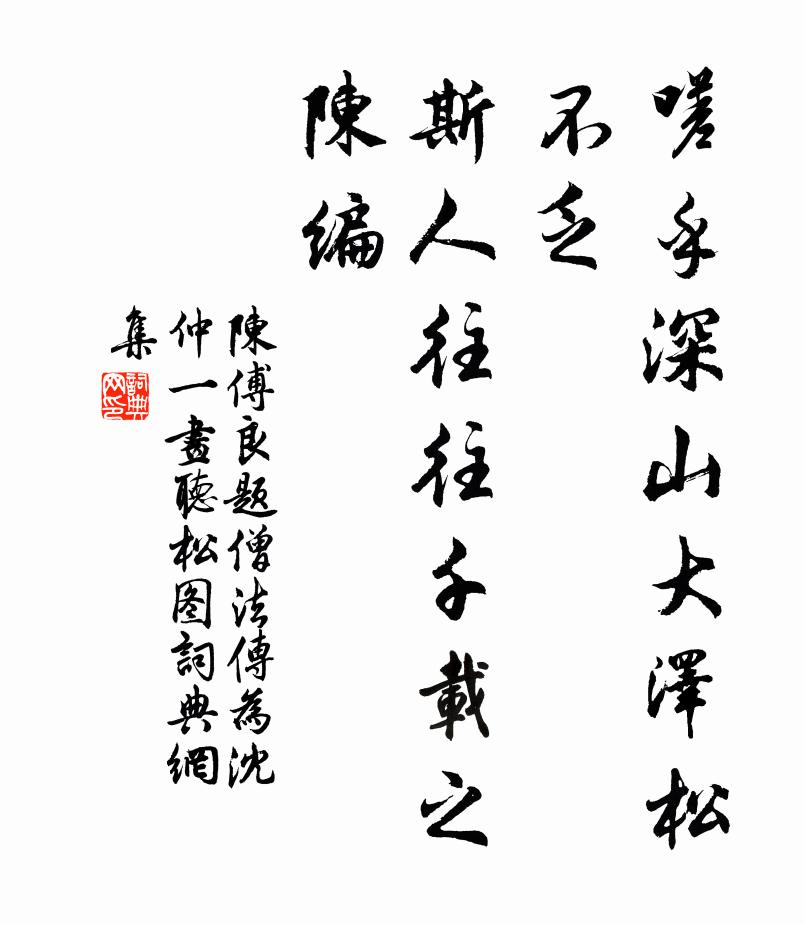 嗟乎深山大澤松
不乏
斯人往往千載之
陳編
陳傅良題僧法傳為沈
仲一畫聽松图詞典網
集
詞典网印